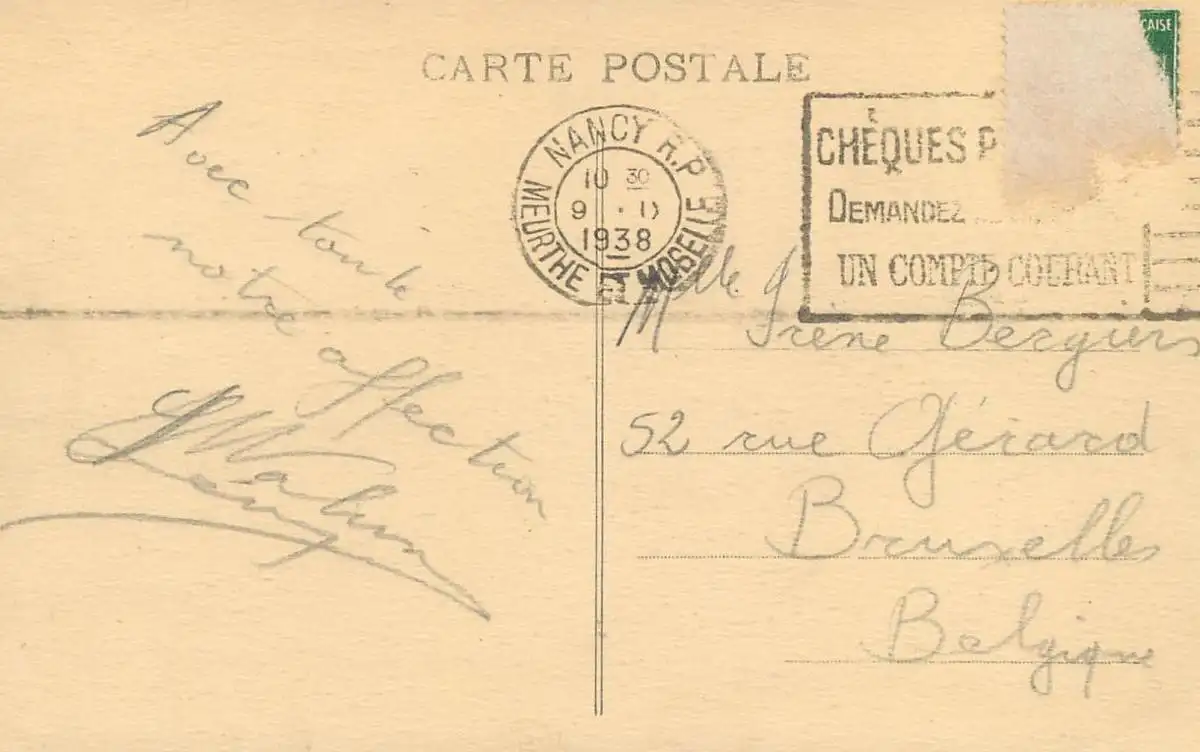 CARTE POSTALE
CAISE
NANCY R.P
10 30
9 . II
1938
MEURTHE ET MOSELLE
CHÈQUES P
DEMANDEZ
UN COMPTE COURANT
Avec toute
notre affection
Mlle Irène Bergiers
52 rue Gérard
Bruxelles
Belgique